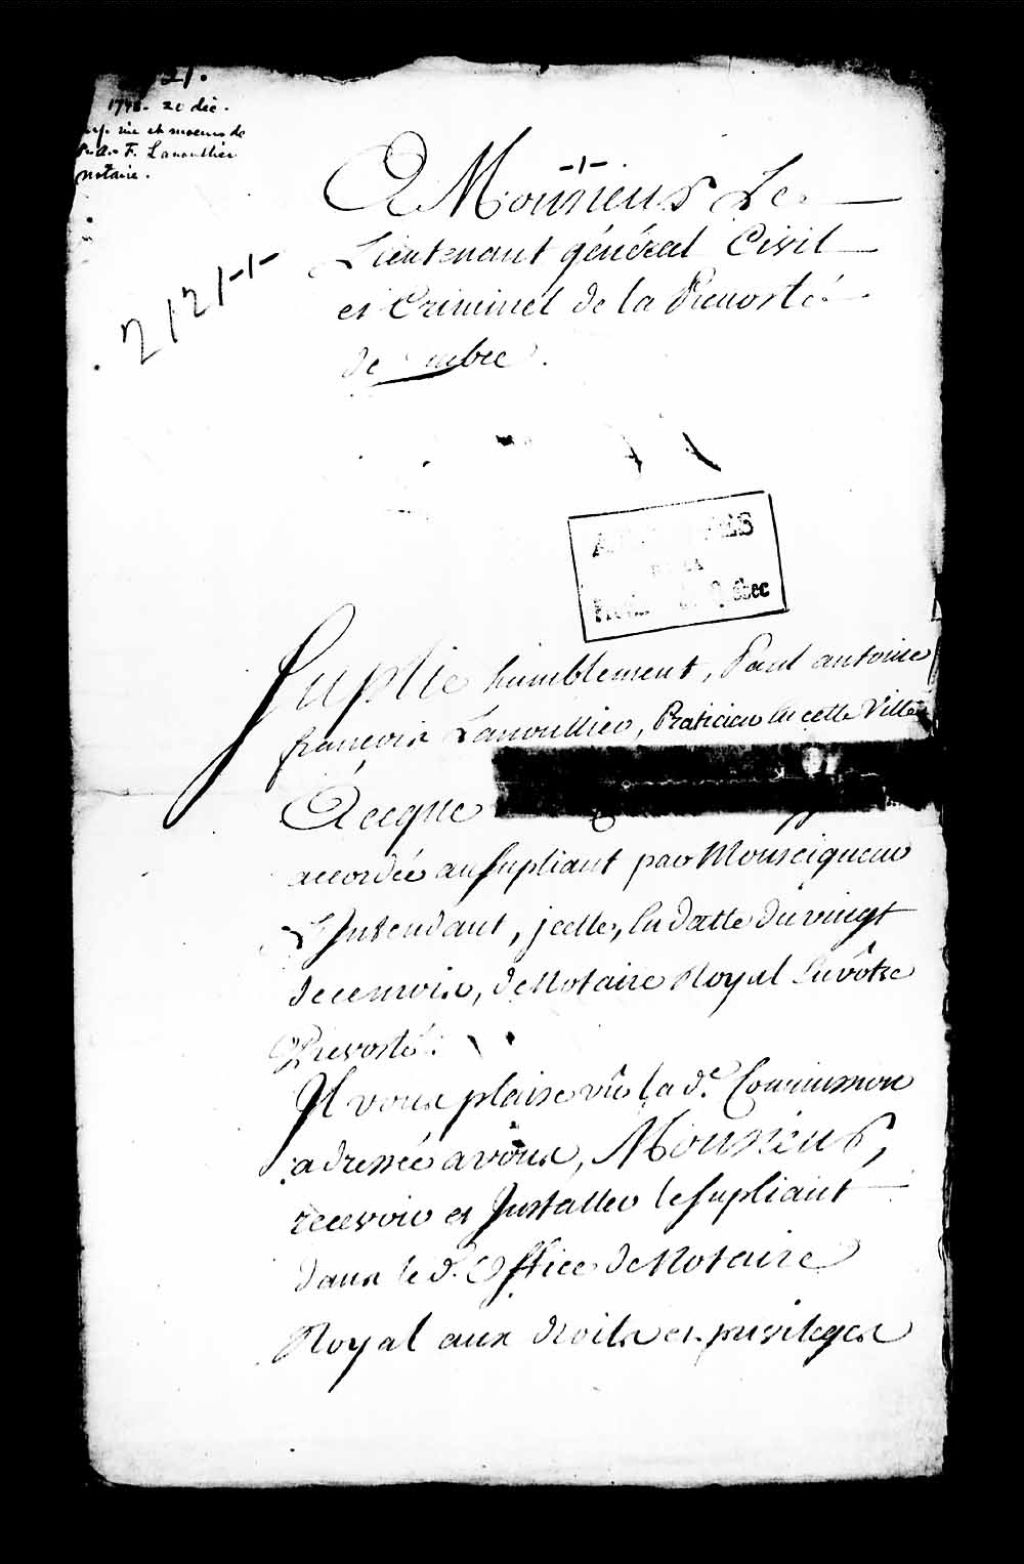 21.
1748. 20 dec.
vie et moeurs de
P. A. F. Lanoullier
notaire.
2121-1-
-1-
A Monsieur Le
Lieutenant général Civil
et Criminel de la Prevosté
de Quebec.
ARCHIVES
DE LA
Province de Québec
Suplie humblement, Paul antoine
françois Lanoullier, Praticien en cette Ville
Aceque
accordée au supliant par Monseigneur
L'Intendant, jcelle, en datte du vingt
de ce mois, de Notaire Royal en vôtre
Prevosté.
Il vous plaise vû la de. Commission
adressée a vous, Monsieur,
recevoir et Installer le supliant
dans le d. Office de Notaire
Royal aux droits et privileges